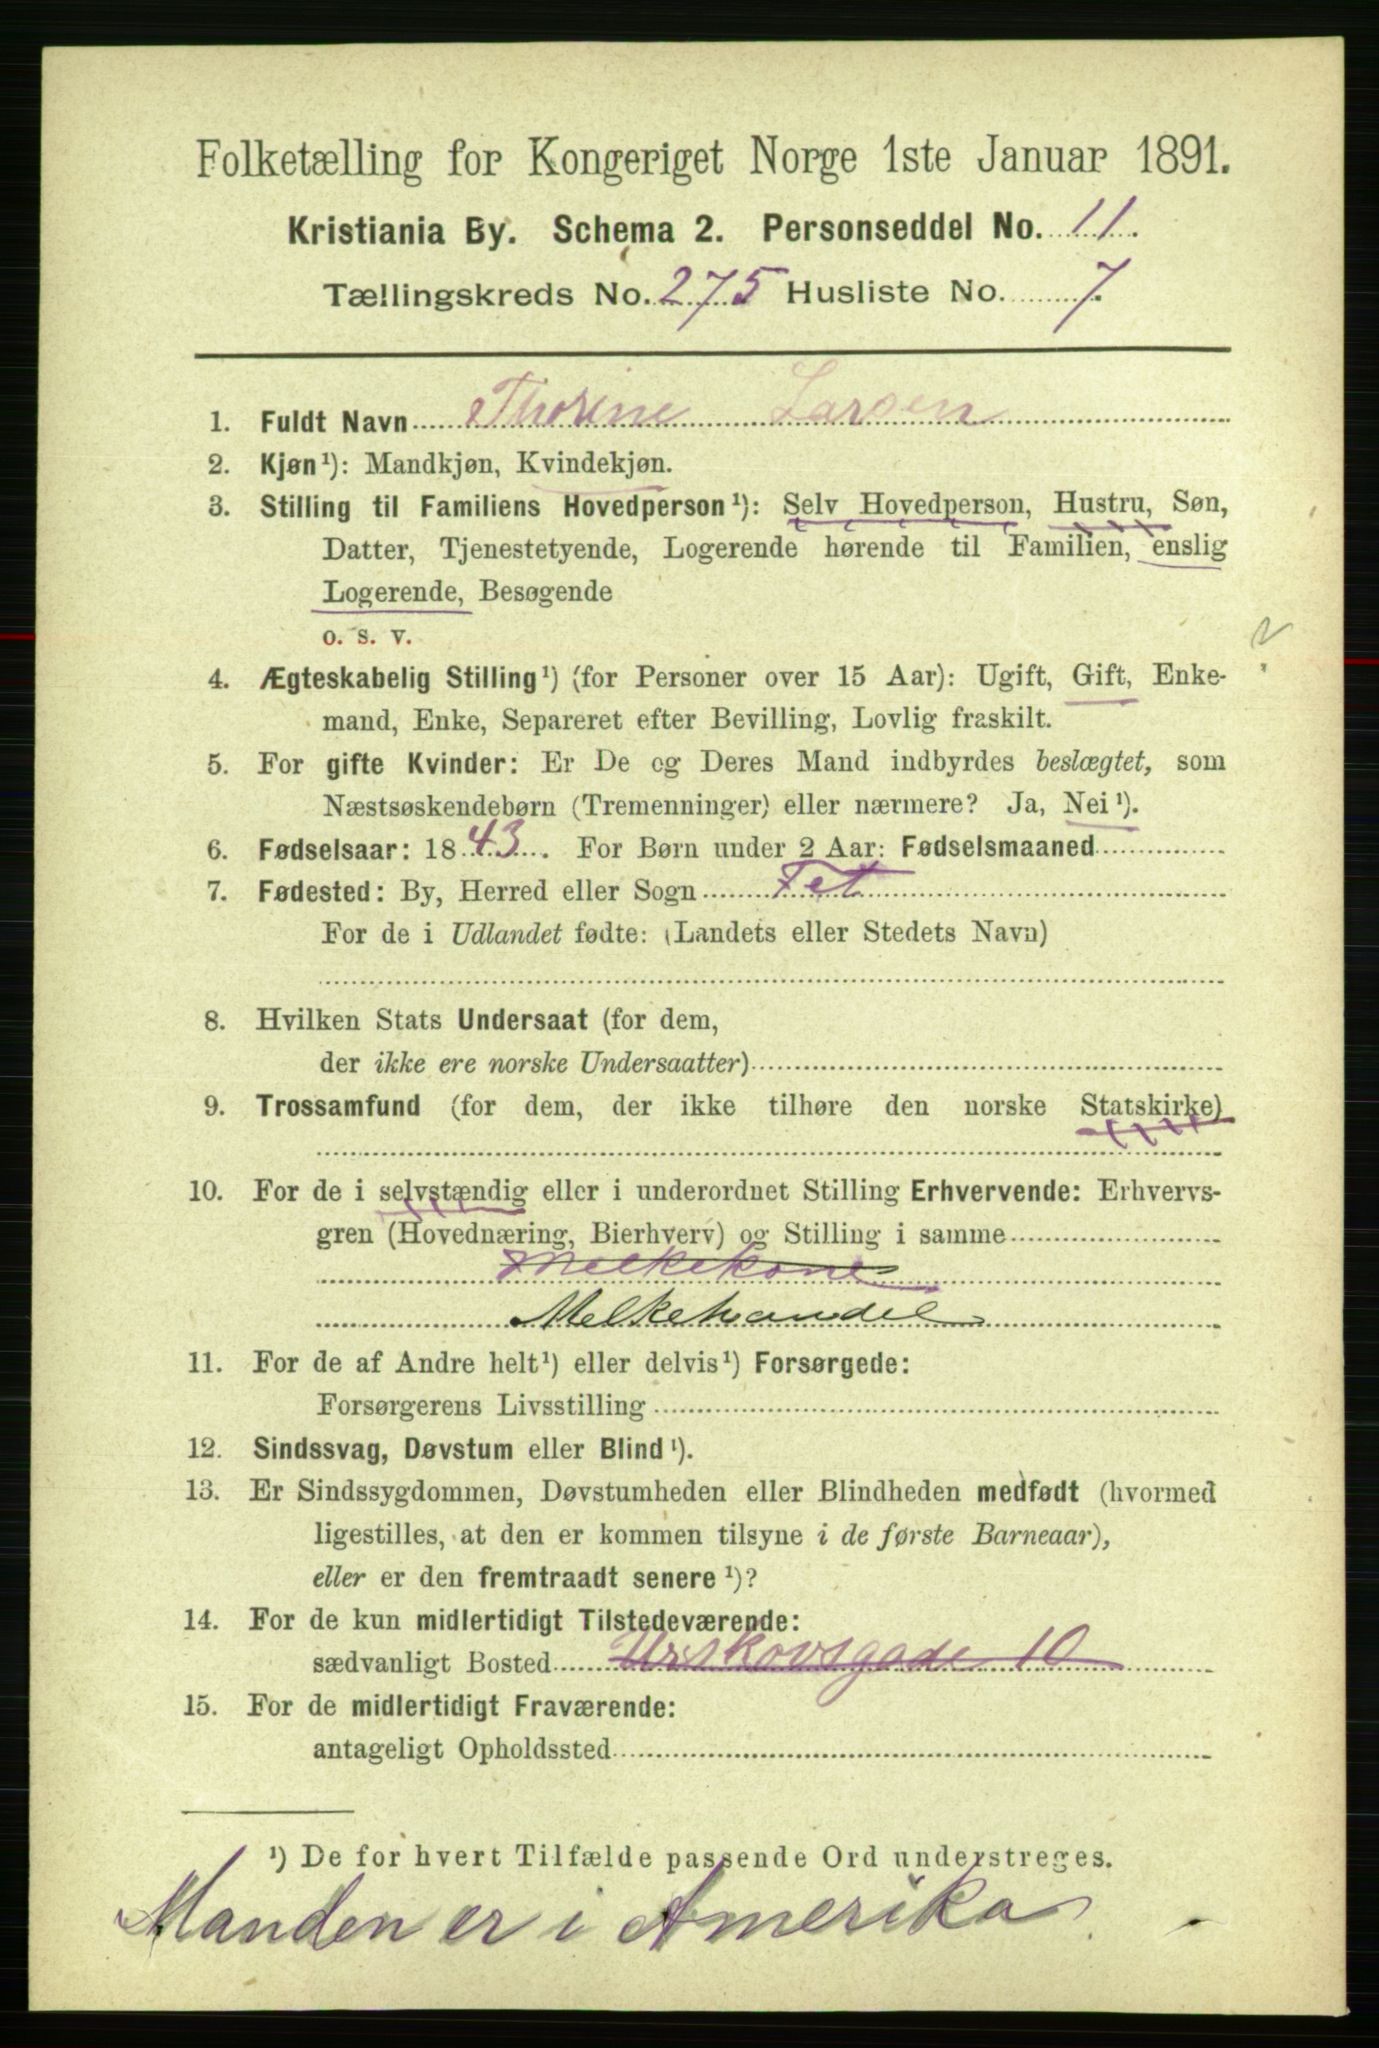 Folketælling for Kongeriget Norge 1ste Januar 1891.
Kristiania By. Schema 2. Personseddel No. 11.
Tællingskreds No. 275 Husliste No. 7.
1. Fuldt Navn Thorine Larsen
2. Kjøn¹): Mandkjøn, Kvindekjøn.
3. Stilling til Familiens Hovedperson¹): Selv Hovedperson, Hustru, Søn,
Datter, Tjenestetyende, Logerende hørende til Familien, enslig
Logerende, Besøgende
o. s. v.
4. Ægteskabelig Stilling¹) (for Personer over 15 Aar): Ugift, Gift, Enke-
mand, Enke, Separeret efter Bevilling, Lovlig fraskilt.
5. For gifte Kvinder: Er De og Deres Mand indbyrdes beslægtet, som
Næstsøskendebørn (Tremenninger) eller nærmere? Ja, Nei¹).
6. Fødselsaar: 1843. For Børn under 2 Aar: Fødselsmaaned
7. Fødested: By, Herred eller Sogn Fet
For de i Udlandet fødte: (Landets eller Stedets Navn)
8. Hvilken Stats Undersaat (for dem,
der ikke ere norske Undersaatter)
9. Trossamfund (for dem, der ikke tilhøre den norske Statskirke)
10. For de i selvstændig eller i underordnet Stilling Erhvervende: Erhvervs-
gren (Hovednæring, Bierhverv) og Stilling i samme
Melkekone
Melkehandel
11. For de af Andre helt¹) eller delvis¹) Forsørgede:
Forsørgerens Livsstilling
12. Sindssvag, Døvstum eller Blind¹).
13. Er Sindssygdommen, Døvstumheden eller Blindheden medfødt (hvormed
ligestilles, at den er kommen tilsyne i de første Barneaar),
eller er den fremtraadt senere¹)?
14. For de kun midlertidigt Tilstedeværende:
sædvanligt Bosted Urskovsgade 10
15. For de midlertidigt Fraværende:
antageligt Opholdssted
¹) De for hvert Tilfælde passende Ord understreges.
Manden er i Amerika